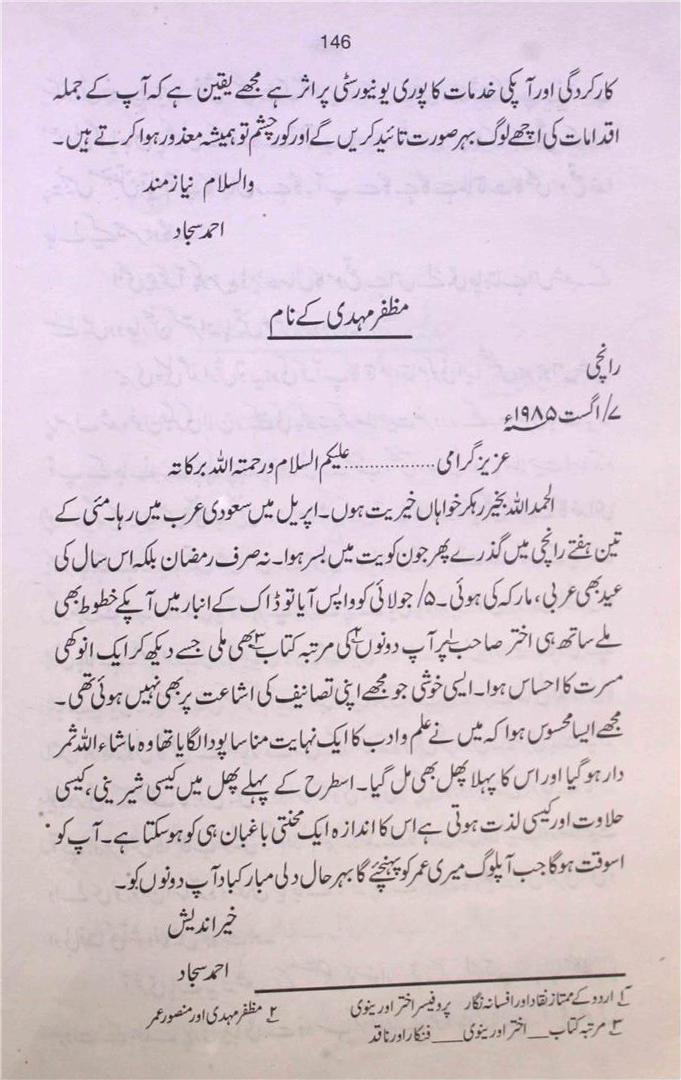 146
کارکردگی اور آپکی خدمات کا پوری یونیورسٹی پر اثر ہے مجھے یقین ہے کہ آپ کے جملہ
اقدامات کی اچھے لوگ بہر صورت تائید کریں گے اور کور چشم تو ہمیشہ معذور ہوا کرتے ہیں۔
والسلام نیاز مند
احمد سجاد
مظفر مہدی کے نام
رانچی
۷/اگست ۱۹۸۵ء
عزیز گرامی ................ علیکم السلام ورحمتہ اللہ برکاتہ
الحمد اللہ بخیر رہکر خواہاں خیریت ہوں۔ اپریل میں سعودی عرب میں رہا۔ مئی کے
تین ہفتے رانچی میں گذرے پھر جون کویت میں بسر ہوا۔ نہ صرف رمضان بلکہ اس سال کی
عید بھی عربی، مارکہ کی ہوئی۔ ۵/ جولائی کو واپس آیا تو ڈاک کے انبار میں آپکے خطوط بھی
ملے ساتھ ہی اختر صاحب۱؎ پر آپ دونوں۲؎ کی مرتبہ کتاب۳؎ بھی ملی جسے دیکھ کر ایک انوکھی
مسرت کا احساس ہوا۔ ایسی خوشی جو مجھے اپنی تصانیف کی اشاعت پر بھی نہیں ہوئی تھی۔
مجھے ایسا محسوس ہوا کہ میں نے علم و ادب کا ایک نہایت منا سا پودا لگایا تھا وہ ماشاء اللہ ثمر
دار ہو گیا اور اس کا پہلا پھل بھی مل گیا۔ اسطرح کے پہلے پھل میں کیسی شیرینی، کیسی
حلاوت اور کیسی لذت ہوتی ہے اس کا اندازہ ایک محنتی باغبان ہی کو ہو سکتا ہے۔ آپ کو
اسوقت ہوگا جب آپلوگ میری عمر کو پہنچئے گا بہر حال دلی مبارکباد آپ دونوں کو۔
خیر اندیش
احمد سجاد
۱؎ اردو کے ممتاز نقاد اور افسانہ نگار پروفیسر اختر اورینوی ۲؎ مظفر مہدی اور منصور عمر
۳؎ مرتبہ کتاب__اختر اورینوی__فنکار اور ناقد